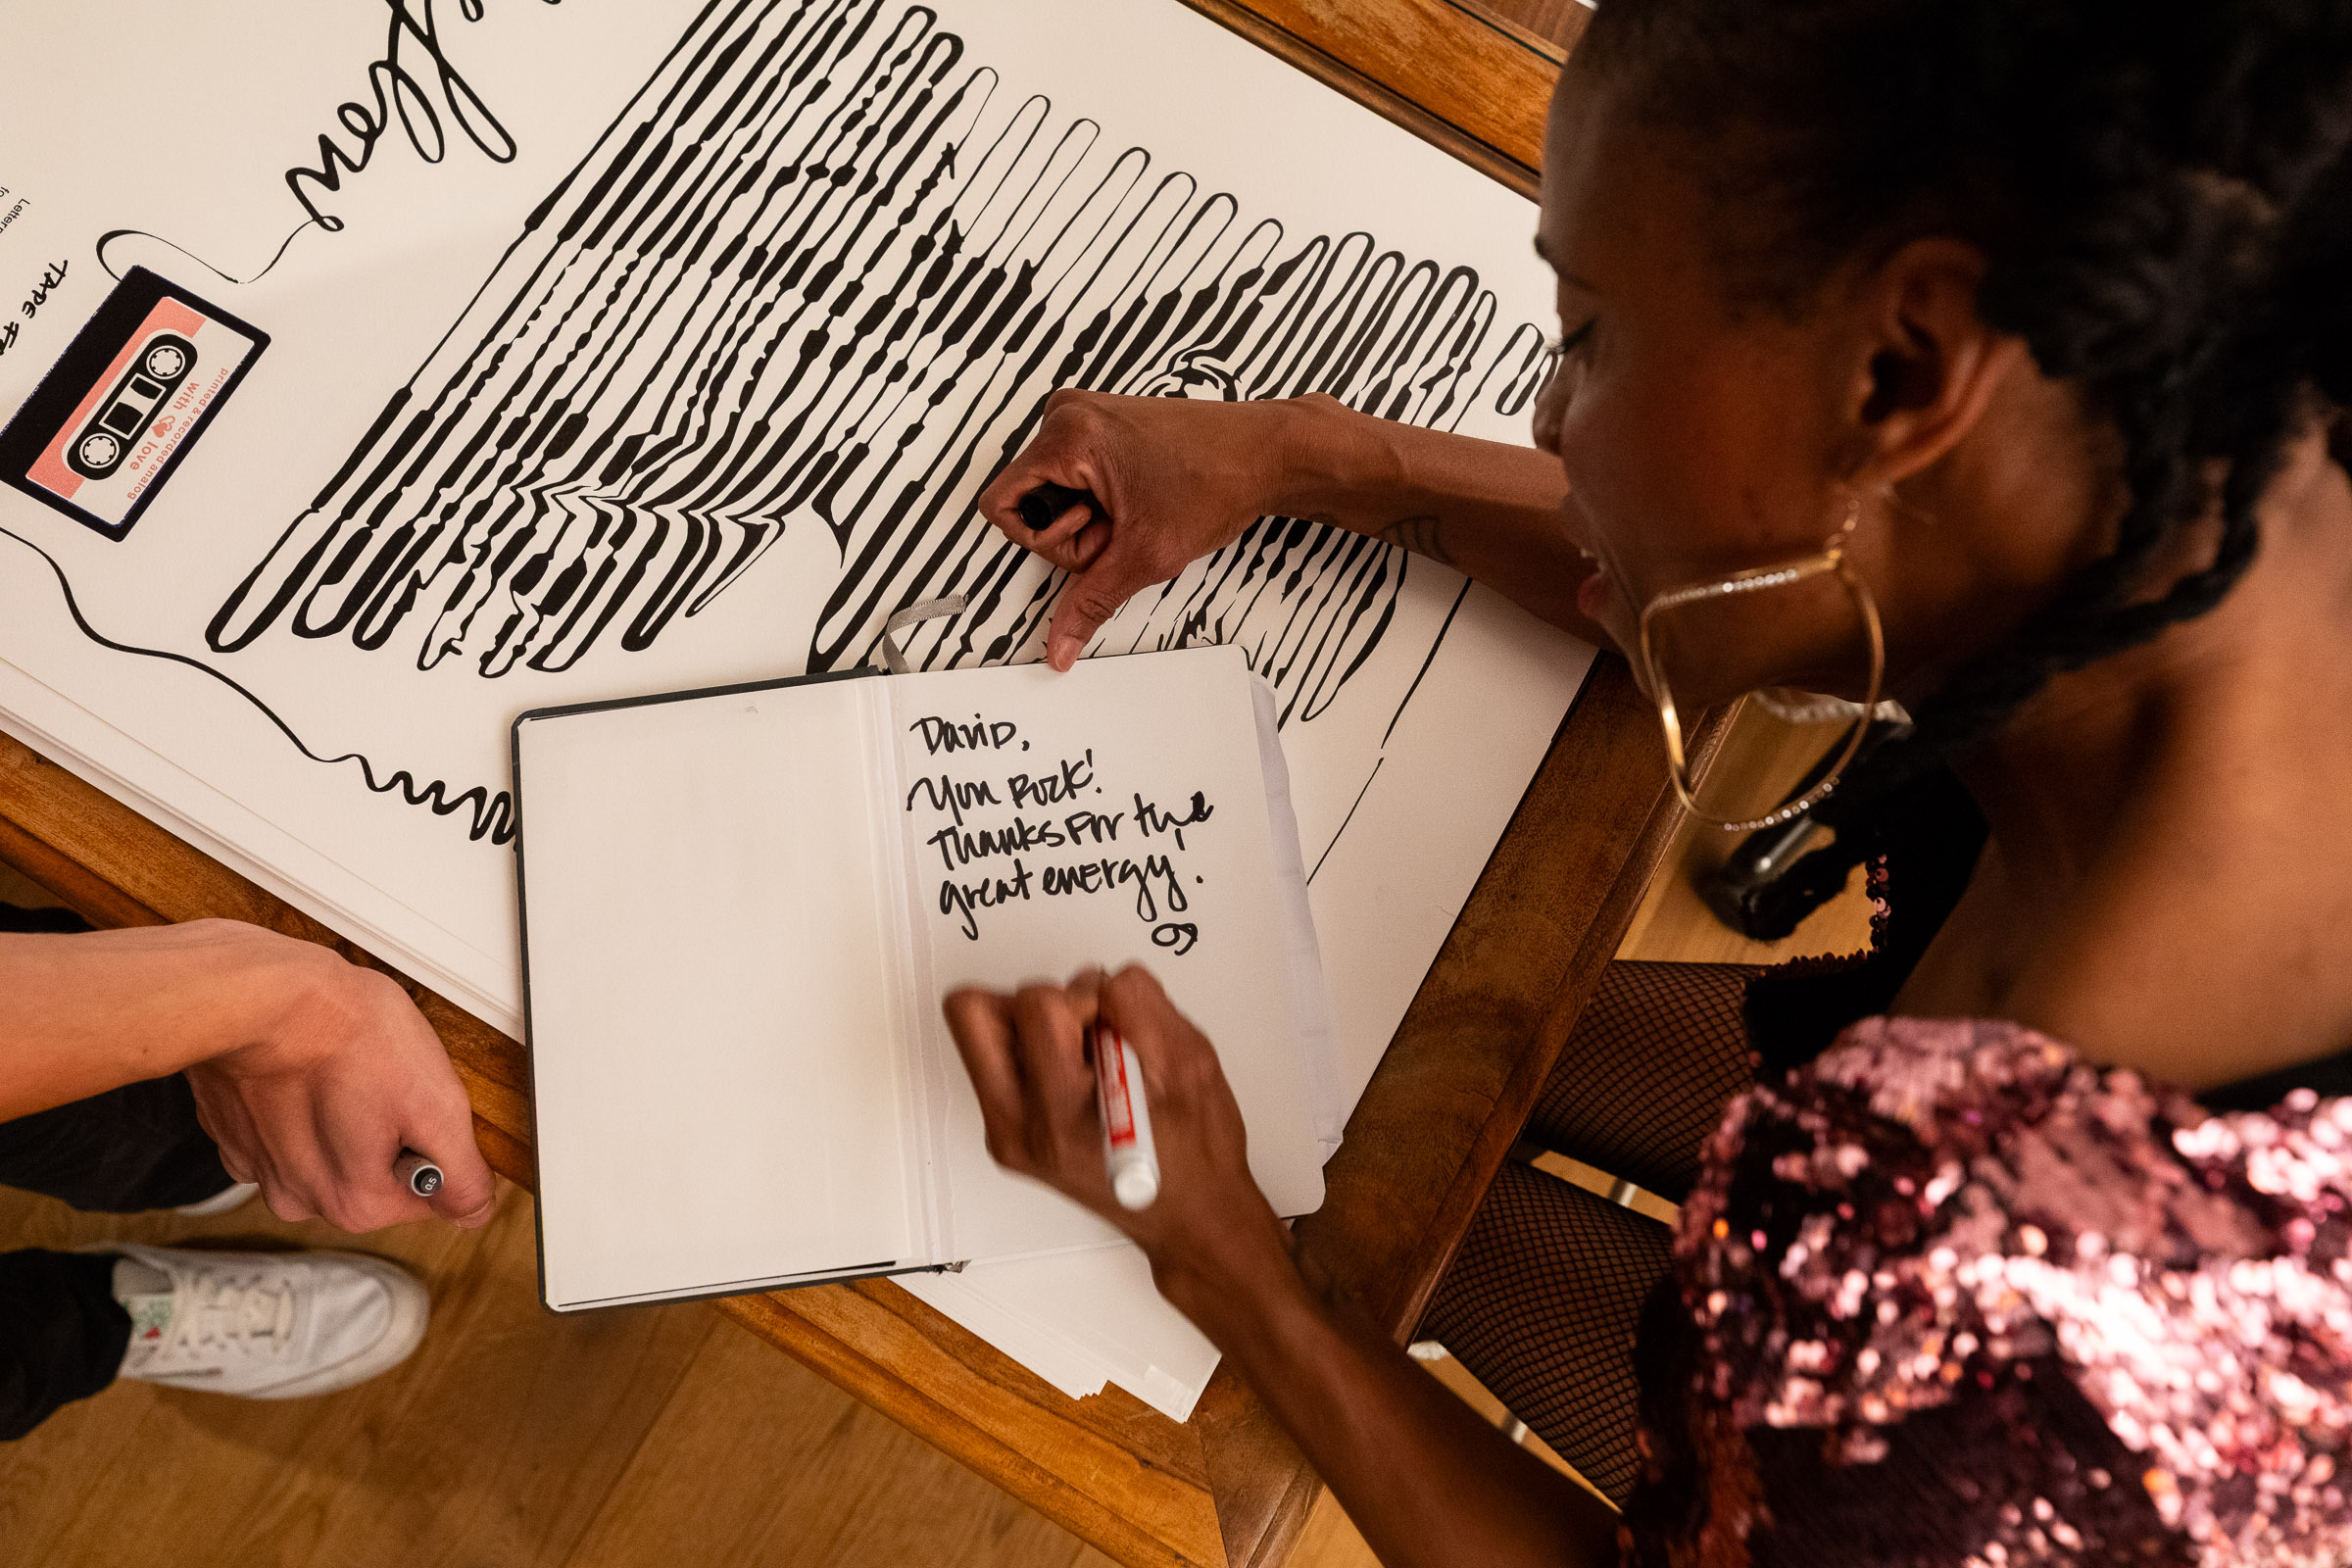 David,
You Rock!
Thanks for the
great energy!
printed & recorded analog
with love
TAPE
0.5